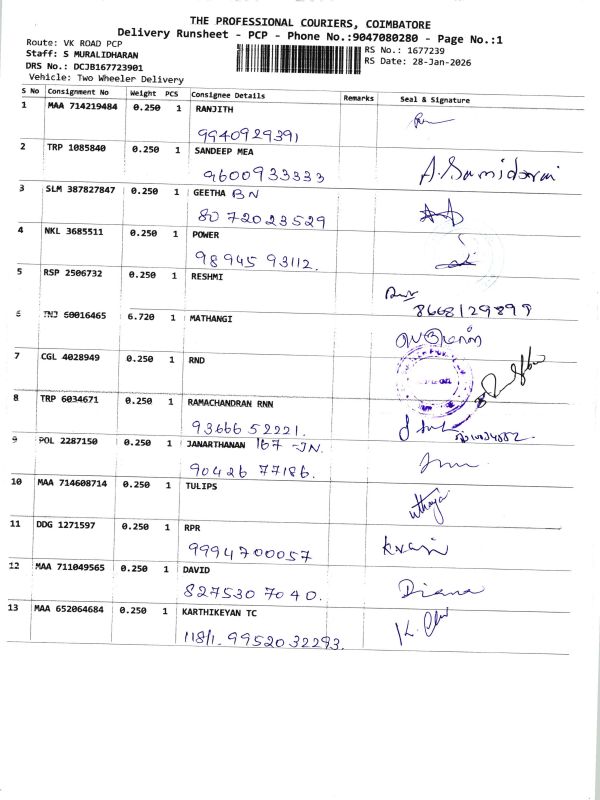 THE PROFESSIONAL COURIERS, COIMBATORE
Delivery Runsheet - PCP - Phone No.:9047080280 - Page No.:1
Route: VK ROAD PCP
RS No.: 1677239
Staff: S MURALIDHARAN
RS Date: 28-Jan-2026
DRS No.: DCJB167723901
Vehicle: Two Wheeler Delivery
S No Consignment No Weight PCS Consignee Details Remarks Seal & Signature
1 MAA 714219484 0.250 1 RANJITH
9940929391
2 TRP 1085840 0.250 1 SANDEEP MEA
9600933333
3 SLM 387827847 0.250 1 GEETHA BN
80 72023529
4 NKL 3685511 0.250 1 POWER
98945 93112.
5 RSP 2506732 0.250 1 RESHMI
8668129899
6 TNJ 60016465 6.720 1 MATHANGI
7 CGL 4028949 0.250 1 RND
8 TRP 6034671 0.250 1 RAMACHANDRAN RNN
93666 52221.
9 POL 2287150 0.250 1 JANARTHANAN 167 -JN.
90426 77186.
10 MAA 714608714 0.250 1 TULIPS
11 DDG 1271597 0.250 1 RPR
9994700057
12 MAA 711049565 0.250 1 DAVID
827530 7040. Diana
13 MAA 652064684 0.250 1 KARTHIKEYAN TC
118/1. 9952032293.